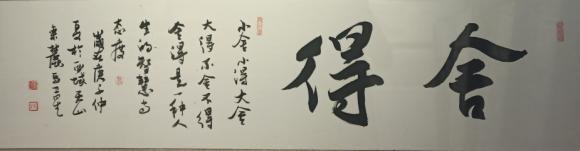 舍得
小舍小得大舍
大得不舍不得
舍得是一种人
生的智慧与
态度
岁在庚子仲
夏於西域天山